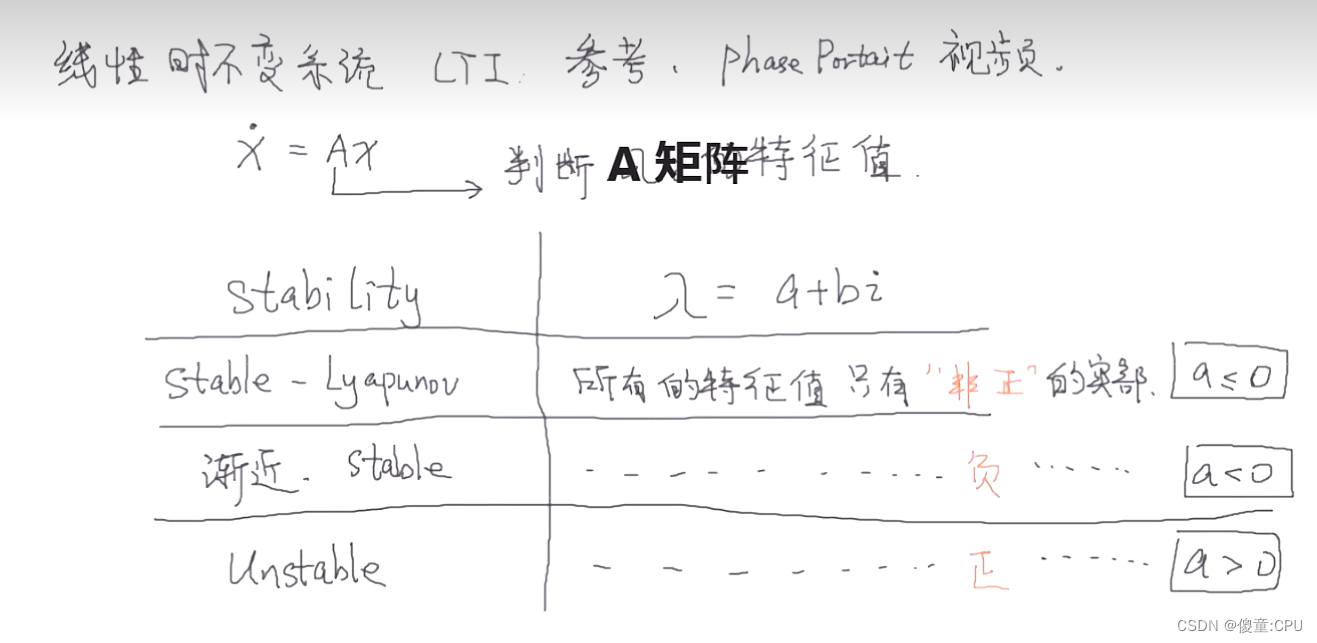 线性时不变系统 LTI. 参考. Phase Portait 视频.
ẋ = Ax
判断 A 矩阵 特征值.
Stability λ = a+bi
Stable - Lyapunov 所有的特征值只有 "非正" 的实部. a ≤ 0
渐近. Stable - - - - - - - - - - 负 ...... a < 0
Unstable - - - - - - - - - 正 ...... a > 0
CSDN @傻童:CPU